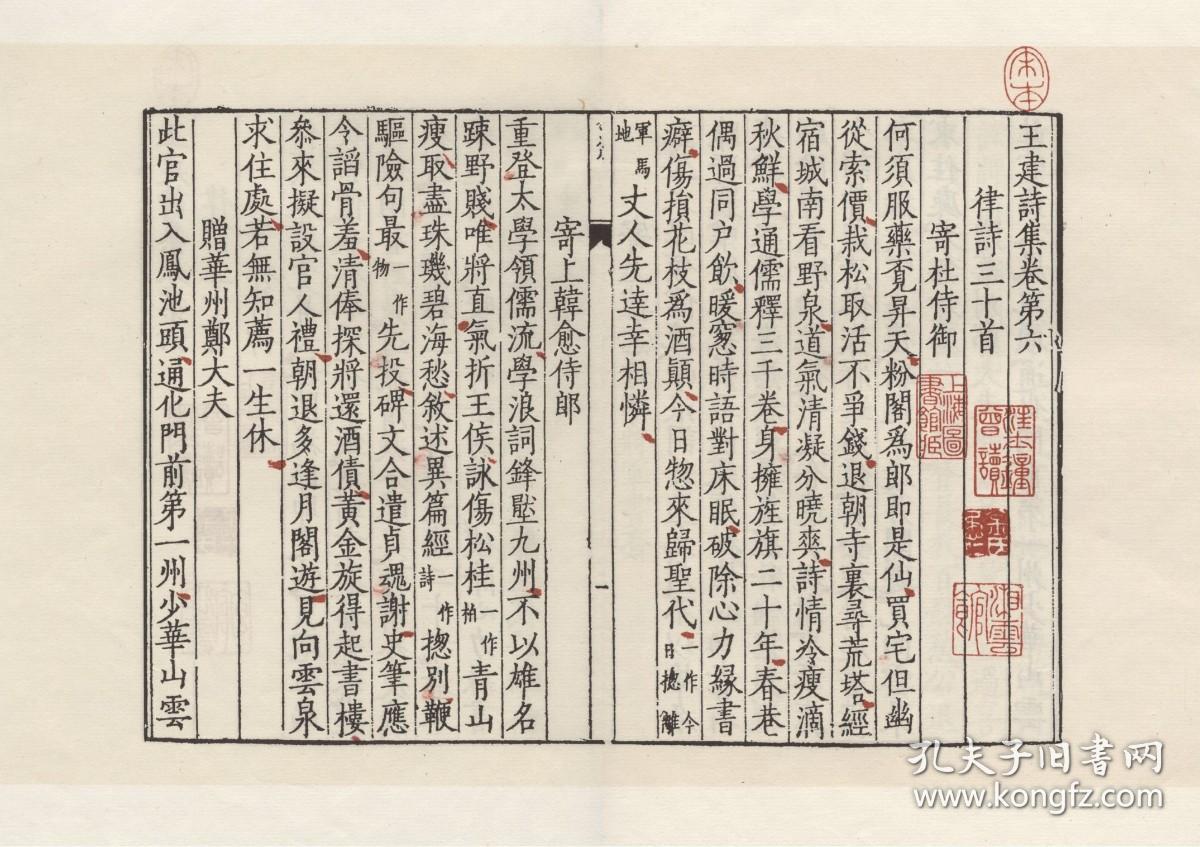 王建詩集卷第六
律詩三十首
寄杜侍御
何須服藥覓昇天粉閣爲郎即是仙買宅但幽
從索價栽松取活不爭錢退朝寺裏尋荒塔經
宿城南看野泉道氣清凝分曉爽詩情冷瘦滴
秋鮮學通儒釋三千卷身擁旌旗二十年春巷
偶過同户飲暖窻時語對床眠破除心力緣書
癖傷損花枝爲酒顛今日惣來歸聖代一作今日揔離
軍馬地丈人先達幸相憐
一
寄上韓愈侍郎
重登太學領儒流學浪詞鋒壓九州不以雄名
踈野賤唯將直氣折王侯詠傷松桂一作柏青山
瘦取盡珠璣碧海愁敘述異篇經一作詩揔別鞭
驅險句最一作物先投碑文合遣貞魂謝史筆應
令諂骨羞清俸探將還酒債黃金旋得起書樓
叅來擬設官人禮朝退多逢月閣遊見向雲泉
求住處若無知薦一生休
贈華州鄭大夫
此官出入鳳池頭通化門前第一州少華山雲
宋本
上海圖書館所藏
汪士鐘曾讀
孔夫子旧书网
www.kongfz.com